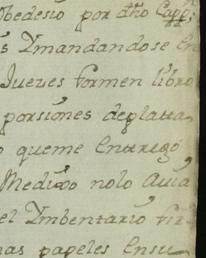 obedesio por dho Capp.n
s Ymandandose En
Jueves formen libro
porsiones deplatta
o queme Enttrego
Medixo nolo Auia
el Ymbentario fir
nas papeles Ensu